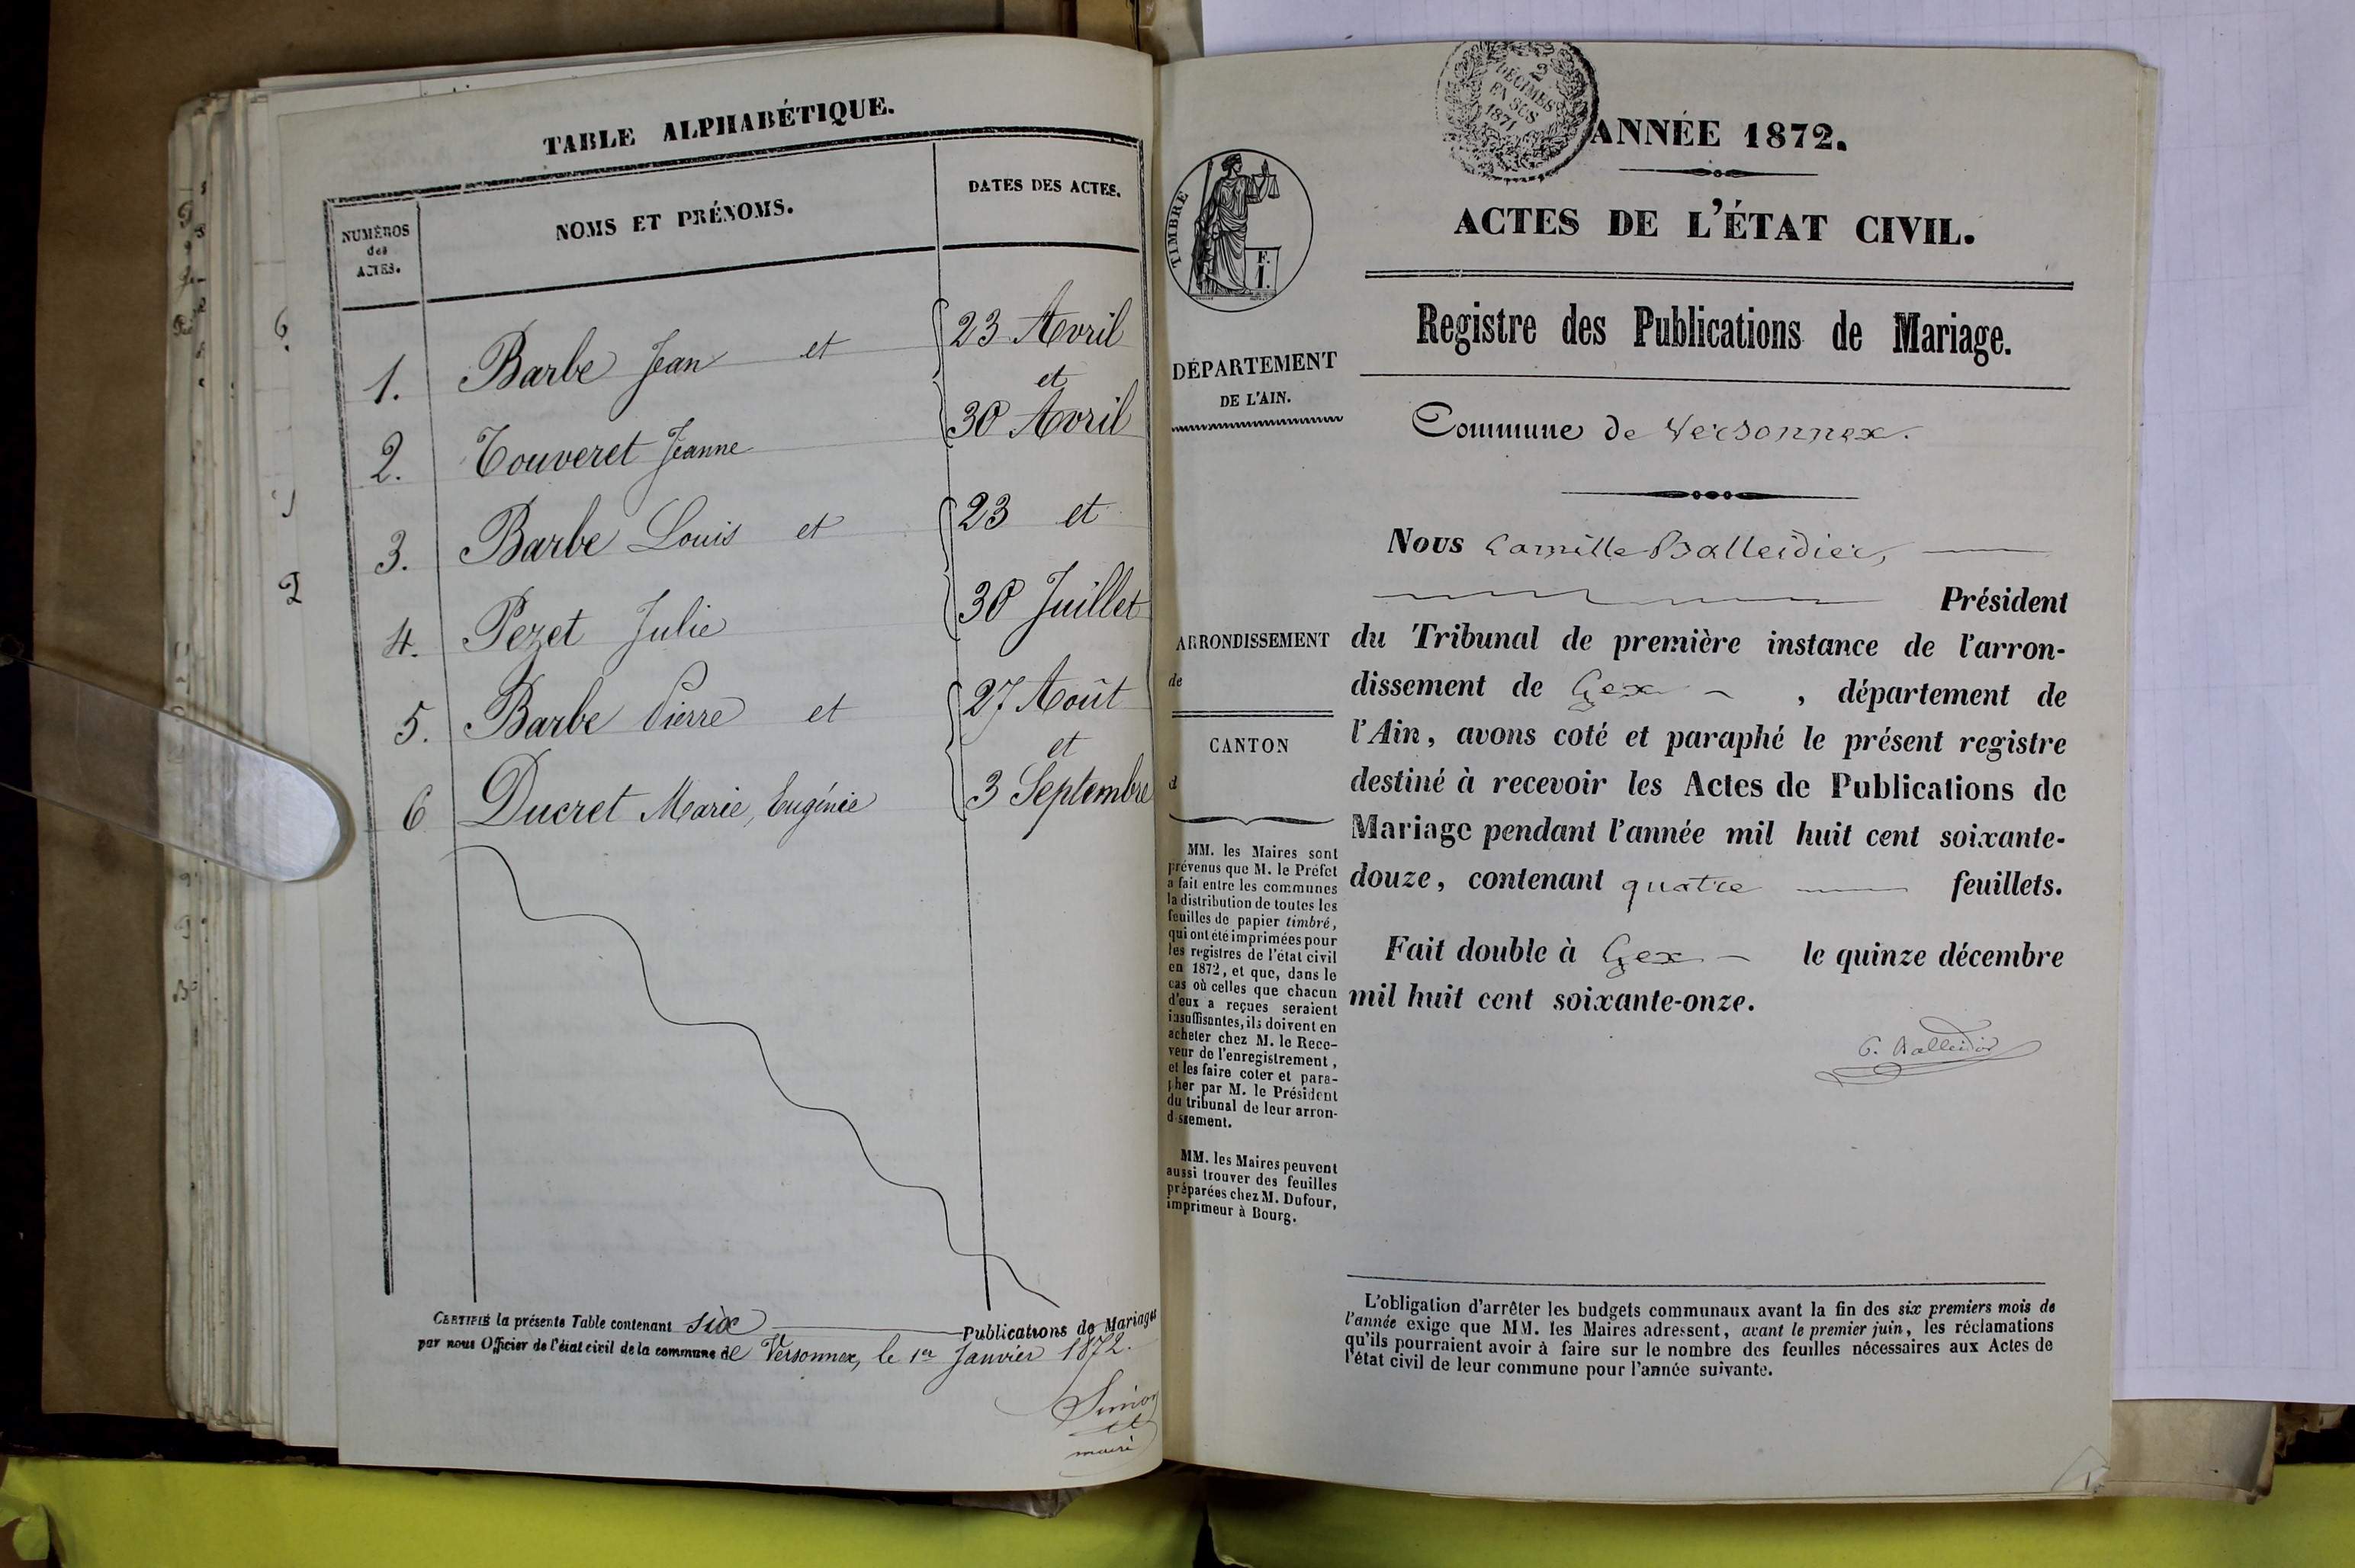 TABLE ALPHABÉTIQUE.
NUMÉROS
des
ACTES.
NOMS ET PRÉNOMS.
DATES DES ACTES.
1. Barbe Jean et
23 Avril
et
2. Touveret Jeanne
30 Avril
3. Barbe Louis et
23 et
4. Pezet Julie
30 Juillet
5. Barbe Pierre et
27 Août
et
6 Ducret Marie, Eugénie
3 Septembre
CERTIFIÉ la présente Table contenant six Publications de Mariages
par nous Officier de l'état civil de la commune de Versonnex, le 1er Janvier 1872.
maire
2
DÉCIMES
EN SUS
1871
ANNÉE 1872.
ACTES DE L'ÉTAT CIVIL.
TIMBRE
F.
1.
Registre des Publications de Mariage.
DÉPARTEMENT
DE L'AIN.
Commune de Versonnex.
Nous Camille Balleidier,
Président
ARRONDISSEMENT
de
CANTON
d
du Tribunal de première instance de l'arron-
dissement de Gex , département de
l'Ain, avons coté et paraphé le présent registre
destiné à recevoir les Actes de Publications de
Mariage pendant l'année mil huit cent soixante-
douze, contenant quatre feuillets.
Fait double à Gex le quinze décembre
mil huit cent soixante-onze.
C. Balleidier
MM. les Maires sont
prévenus que M. le Préfet
a fait entre les communes
la distribution de toutes les
feuilles de papier timbré,
qui ont été imprimées pour
les registres de l'état civil
en 1872, et que, dans le
cas où celles que chacun
d'eux a reçues seraient
insuffisantes, ils doivent en
acheter chez M. le Rece-
veur de l'enregistrement,
et les faire coter et para-
pher par M. le Président
du tribunal de leur arron-
dissement.
MM. les Maires peuvent
aussi trouver des feuilles
préparées chez M. Dufour,
imprimeur à Bourg.
L'obligation d'arrêter les budgets communaux avant la fin des six premiers mois de
l'année exige que MM. les Maires adressent, avant le premier juin, les réclamations
qu'ils pourraient avoir à faire sur le nombre des feuilles nécessaires aux Actes de
l'état civil de leur commune pour l'année suivante.